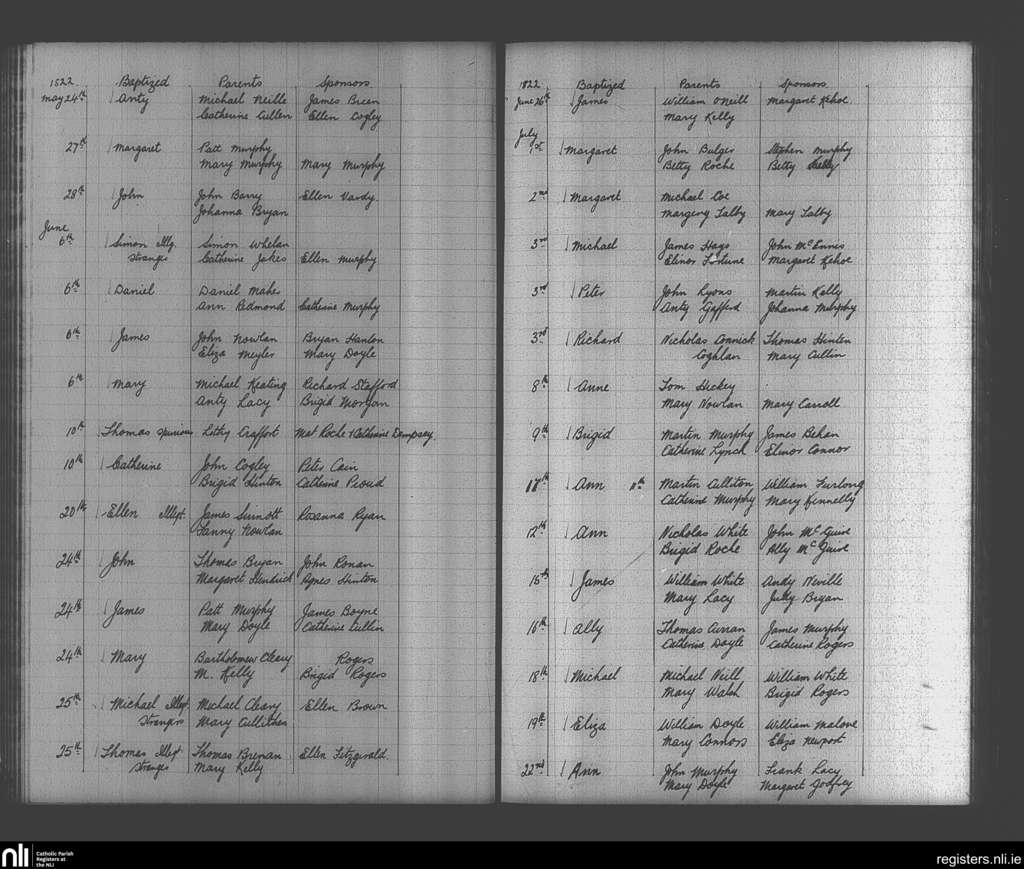 1822 Baptized Parents Sponsors
May 24th Anty Michael Neille James Breen
Catherine Cullen Ellen Cogley
27th Margaret Patt Murphy
Mary Murphy Mary Murphy
28th John John Barry Ellen Vardy
Johanna Bryan
June
6th Simon Illg. Simon Whelan
Stranger Catherine Jakes Ellen Murphy
6th Daniel Daniel Maher
Ann Redmond Catherine Murphy
6th James John Nowlan Bryan Hanlon
Eliza Meyler Mary Doyle
6th Mary Michael Keating Richard Stafford
Anty Lacy Brigid Morgan
10th Thomas Spurious Letty Crafford Mat Roche & Catherine Dempsey.
10th Catherine John Cogley Peter Cain
Brigid Hinton Catherine Proud
20th Ellen Illegt. James Sinnott Rosanna Ryan
Fanny Nowlan
24th John Thomas Bryan John Ronan
Margaret Hendrick Agnes Hinton
24th James Patt Murphy James Boyne
Mary Doyle Catherine Cullin
24th Mary Bartholomew Cleary Rogers
M. Kelly Brigid Rogers
25th Michael Illegt. Michael Cleary Ellen Brown
Strangers Mary Cullitan
25th Thomas Illegt Thomas Brenan Ellen Fitzgerald
Stranger Mary Kelly
1822 Baptized Parents Sponsors
June 26th James William O'Neill Margaret Kehoe.
Mary Kelly
July
1st Margaret John Bulger Stephen Murphy
Betty Roche Betty Kelly
2nd Margaret Michael Coe
Margery Lalby Mary Lalby
3rd Michael James Hays John McEnnis
Elinor Fortune Margaret Kehoe
3rd Peter John Lyons Martin Kelly
Anty Gafford Johanna Murphy
3rd Richard Nicholas Connick Thomas Hinton
Coghlan Mary Cullin
8th Anne Tom Hickey
Mary Nowlan Mary Carroll
9th Brigid Martin Murphy James Behan
Catherine Lynch Elinor Connor
11th Ann 11th Martin Culliton William Furlong
Catherine Murphy Mary Kinnelly
12th Ann Nicholas White John McGuire
Brigid Roche Ally McGuire
15th James William White Andy Neville
Mary Lacy Judy Bryan
16th Ally Thomas Curran James Murphy
Catherine Doyle Catherine Rogers
18th Michael Michael Neill William White
Mary Walsh Brigid Rogers
19th Eliza William Doyle William Malone
Mary Connors Eliza Newport
22nd Ann John Murphy Frank Lacy
Mary Doyle Margaret Godfrey
nli Catholic Parish
Registers at
the NLI
registers.nli.ie